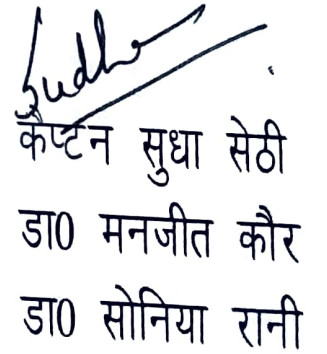 Sudha
कैप्टन सुधा सेठी
डा0 मनजीत कौर
डा0 सोनिया रानी